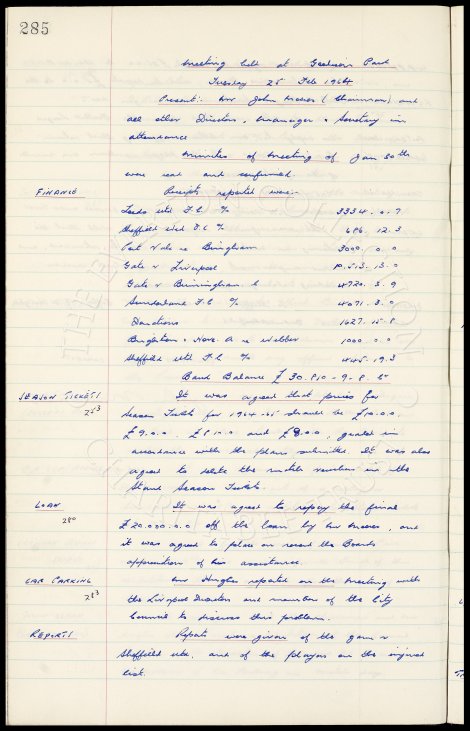 285
Meeting held at Goodison Park
Tuesday 25 Feb 1964
Present:- Mr John Moores (Chairman) and
all other Directors, Manager & Secretary in
attendance
Minutes of meeting of Jan 30th
were read and confirmed
FINANCE Receipts reported were:-
Leeds Utd F.C. % 3334.0.7
Sheffield Utd F.C % 686.12.3
Port Vale re Bingham 3000.0.0
Gate v Liverpool 10.513.13.0
Gate v Birmingham C 4720.3.9
Sunderland F.C % 4071.3.0
Donations 1627.15.8
Brighton & Hove A re Webber 1000.0.0
Sheffield Utd F.C. % 445.19.3
Bank Balance £30.810-9-8.
SEASON TICKETS It was agreed that prices for
253 Season Tickets for 1964-65 should be £10.0.0,
£9.0.0. £8.10.0 and £8.0.0, graded in
accordance with the plans submitted. It was also
agreed to delete the match numbers in the
Stand Season Tickets.
LOAN It was agreed to repay the final
280 £20.000.0.0 off the loan by Mr Moores, and
it was agreed to place on record the Boards
appreciation of his assistance
CAR PARKING Mr Hughes reported on the meeting with
283 the Liverpool Directors and member of the City
Council to discuss this problem.
REPORTS Reports were given of the game v
Sheffield Utd. and of the players on the injured
list.
THE EVERTON COLLECTION